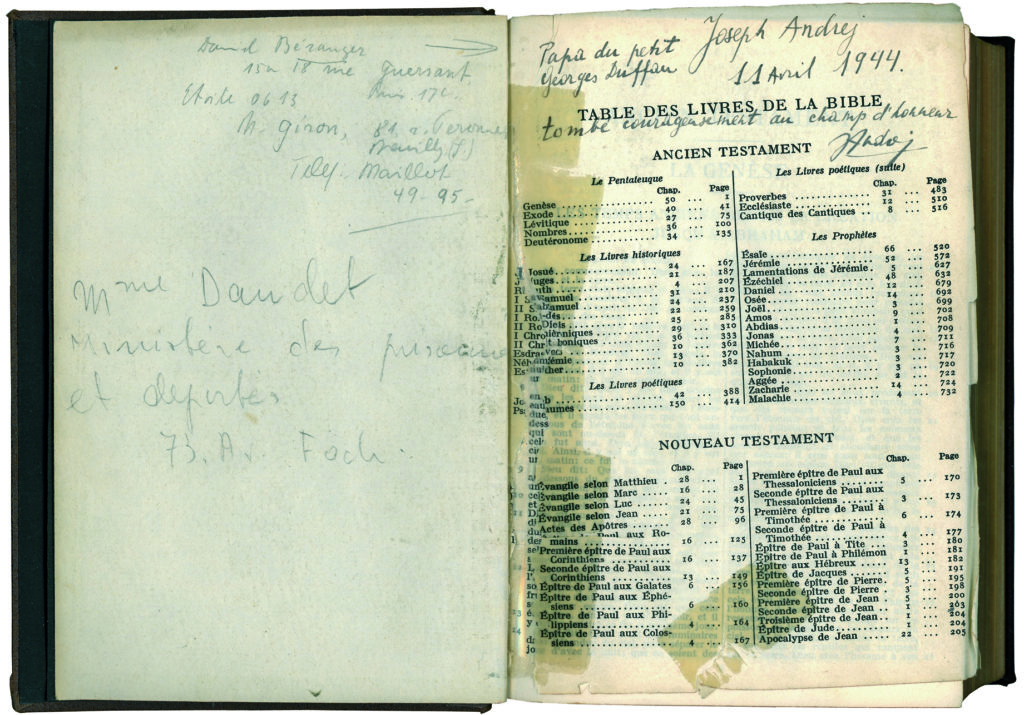 Daniel Béranger
15 18 rue Guersant
Etoile 06 13 Paris 17e
M. Giron, 81. r.
Neuilly (S/)
Telef. Maillot
49-95-
Mme Daudet
Ministère des prisonn
et deportes
73. Av. Foch.
Papa du petit Joseph Andrej
Georges Duffau 11 Avril 1944.
TABLE DES LIVRES DE LA BIBLE
tombé courageusement au champ d'honneur
JAndrej
ANCIEN TESTAMENT
Le Pentateuque
Chap. Page
Genèse 50 ... 1
Exode 40 ... 41
Lévitique 27 ... 75
Nombres 36 ... 100
Deutéronome 34 ... 135
Les Livres historiques
Josué 24 ... 167
21 ... 187
4 ... 207
I Samuel 31 ... 210
II Samuel 24 ... 237
I Ro 22 ... 259
II Ro 25 ... 285
I Chro 29 ... 310
II Chr 36 ... 333
Esdra 10 ... 362
Néh 13 ... 370
Es 10 ... 382
Les Livres poétiques
Jo b 42 ... 388
Psaumes 150 ... 414
Les Livres poétiques (suite)
Chap. Page
Proverbes 31 ... 483
Ecclésiaste 12 ... 510
Cantique des Cantiques 8 ... 516
Les Prophètes
Ésaïe 66 ... 520
Jérémie 52 ... 572
Lamentations de Jérémie. 5 ... 627
Ézéchiel 48 ... 632
Daniel 12 ... 679
Osée 14 ... 692
Joël 3 ... 699
Amos 9 ... 702
Abdias 1 ... 708
Jonas 4 ... 709
Michée 7 ... 711
Nahum 3 ... 716
Habakuk 3 ... 717
Sophonie 3 ... 720
Aggée 2 ... 722
Zacharie 14 ... 724
Malachie 4 ... 732
NOUVEAU TESTAMENT
Chap. Page
Évangile selon Matthieu 28 ... 1
Évangile selon Marc 16 ... 28
Évangile selon Luc 24 ... 45
Évangile selon Jean 21 ... 75
Actes des Apôtres 28 ... 96
Paul aux Ro-
mains 16 ... 125
Première épître de Paul aux
Corinthiens 16 ... 137
Seconde épître de Paul aux
Corinthiens 13 ... 149
Épître de Paul aux Galates 6 ... 156
Épître de Paul aux Éphé-
siens 6 ... 160
Épître de Paul aux Phi-
lippiens 4 ... 164
Épître de Paul aux Colos-
siens 4 ... 167
Chap. Page
Première épître de Paul aux
Thessaloniciens 5 ... 170
Seconde épître de Paul aux
Thessaloniciens 3 ... 173
Première épître de Paul à
Timothée 6 ... 174
Seconde épître de Paul à
Timothée 4 ... 177
Épître de Paul à Tite 3 ... 180
Épître de Paul à Philémon 1 ... 181
Épître aux Hébreux 13 ... 182
Épître de Jacques 5 ... 191
Première épître de Pierre. 5 ... 195
Seconde épître de Pierre 3 ... 198
Première épître de Jean 5 ... 200
Seconde épître de Jean 1 ... 203
Troisième épître de Jean 1 ... 204
Épître de Jude 1 ... 204
Apocalypse de Jean 22 ... 205